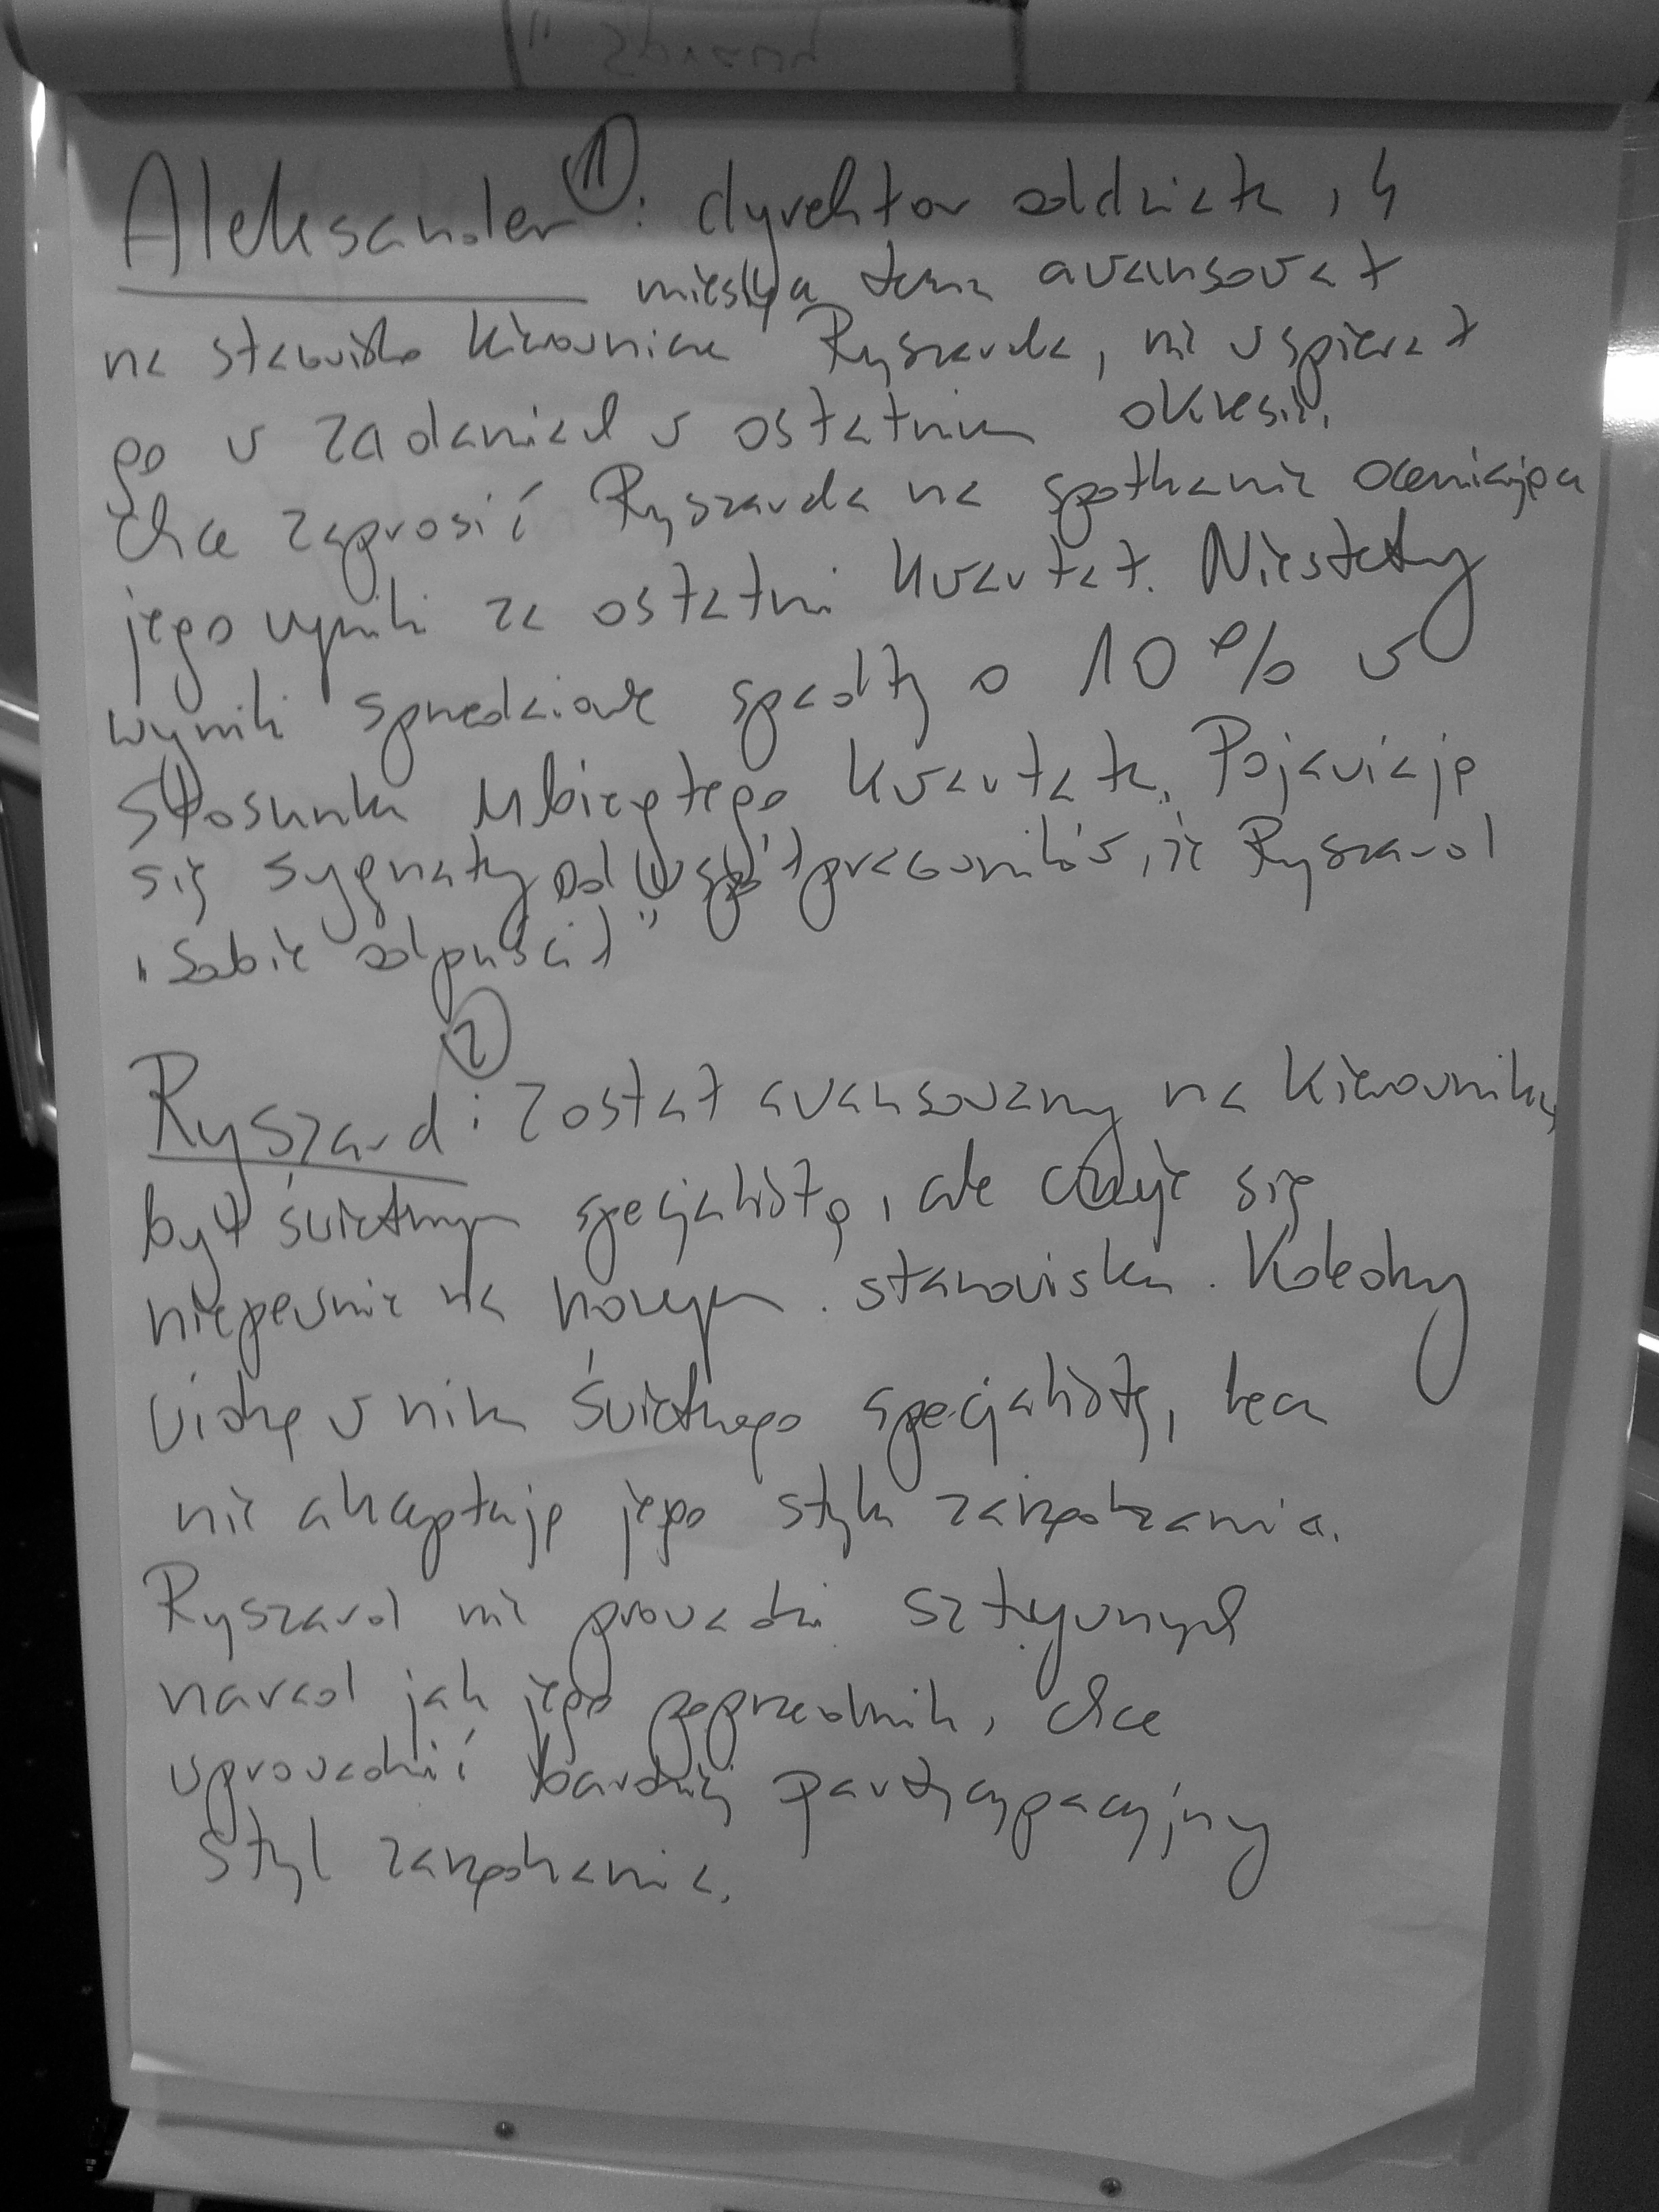 Aleksander ①: dyrektor oddziału, 4
miesiące temu awansował
na stanowisko kierownicze Ryszarda, nie wspierał
go w zadaniach w ostatnim okresie.
Chce zaprosić Ryszarda na spotkanie oceniające
jego wyniki za ostatni kwartał. Niestety
wyniki sprzedażowe spadły o 10% w
stosunku ubiegłego kwartału. Pojawiają
się sygnały od współpracowników, że Ryszard
„sobie odpuścił”
Ryszard ②: Został awansowany na kierownika,
był świetnym specjalistą, ale czuje się
niepewnie na nowym stanowisku. Koledzy
widzą w nim świetnego specjalistę, lecz
nie akceptują jego stylu zarządzania.
Ryszard nie prowadzi sztywnych
narad jak jego poprzednik, chce
wprowadzić bardziej partycypacyjny
styl zarządzania.